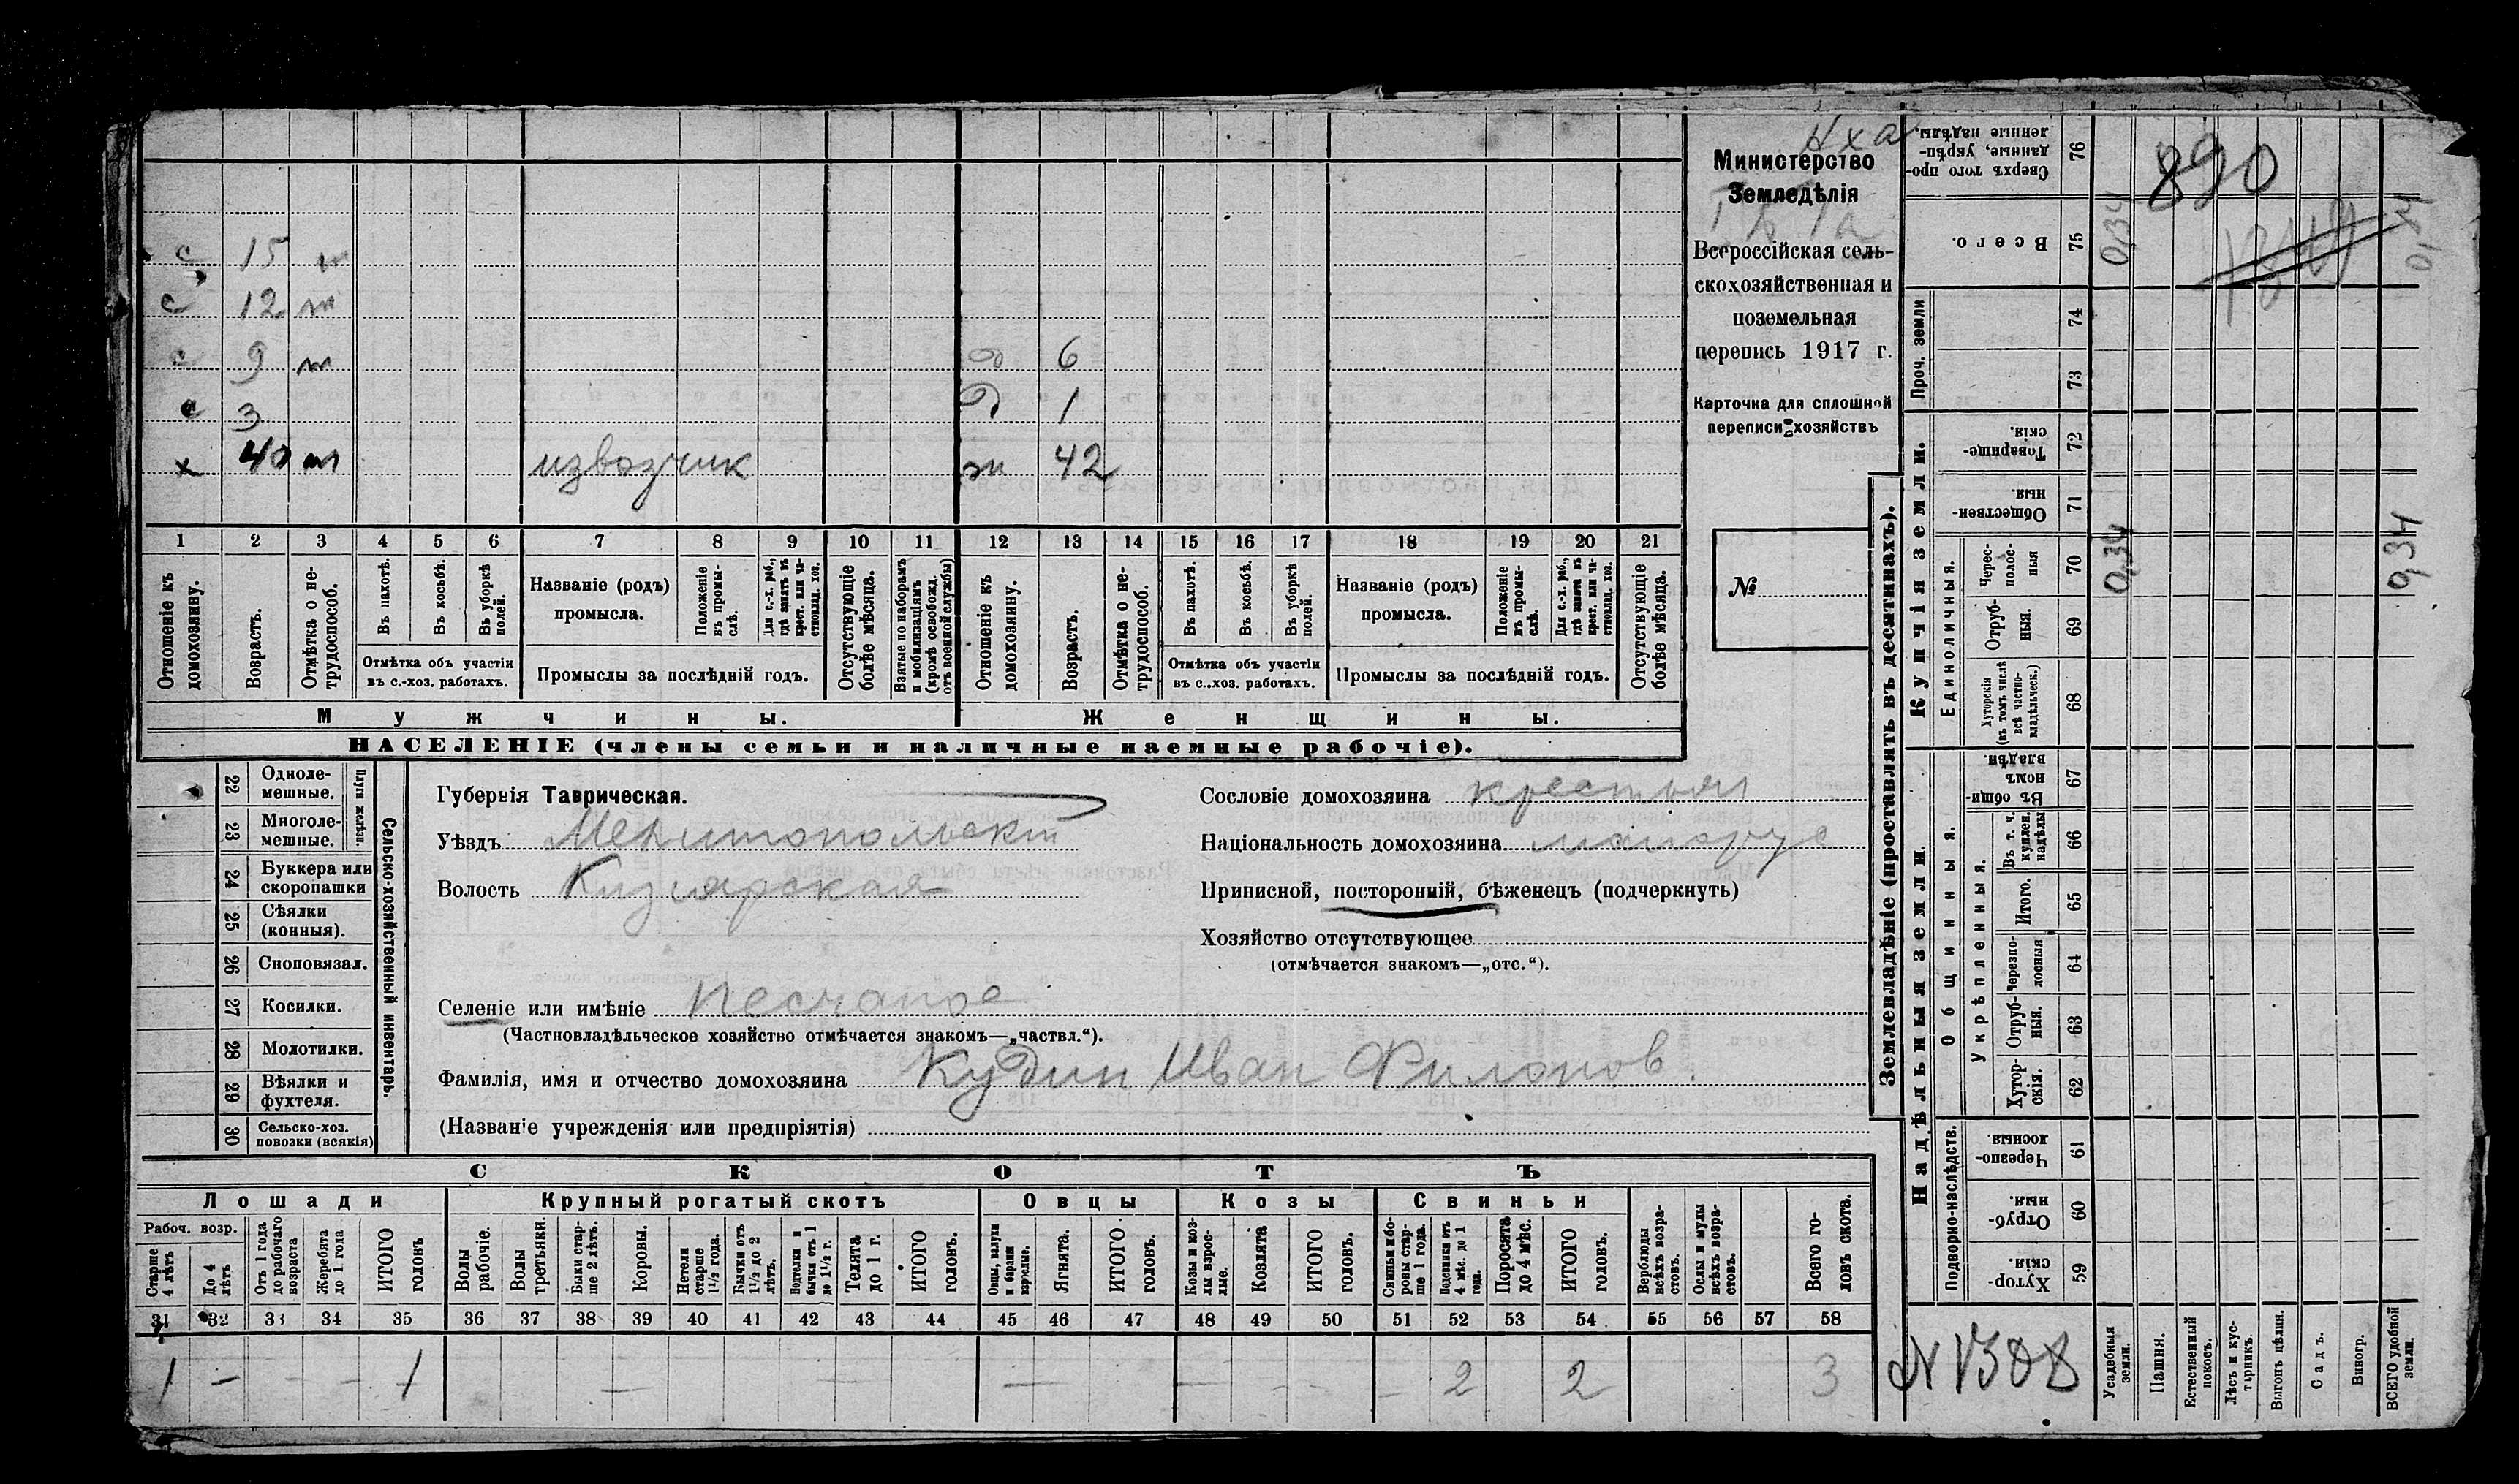 с 15 т
с 12 т
с 9 т д 6
с 3 д 1
х 40 т извозчик ж 42
1 2 3 4 5 6 7 8 9 10 11 12 13 14 15 16 17 18 19 20 21
Отношеніе къ домохозяину.
Возрастъ.
Отмѣтка о нетрудоспособ.
Въ пахотѣ.
Въ косьбѣ.
Въ уборкѣ полей.
Отмѣтка объ участіи
въ с.-хоз. работахъ.
Названіе (родъ)
промысла.
Положеніе въ промыслѣ.
Для с.-х. раб., гдѣ занятъ въ крест. или частновлад. хоз.
Промыслы за послѣдній годъ.
Отсутствующіе болѣе мѣсяца.
Взятые по наборамъ и мобилизаціямъ (кромѣ освобожд. отъ военной службы)
Отношеніе къ домохозяину.
Возрастъ.
Отмѣтка о нетрудоспособ.
Въ пахотѣ.
Въ косьбѣ.
Въ уборкѣ полей.
Отмѣтка объ участіи
въ с.-хоз. работахъ.
Названіе (родъ)
промысла.
Положеніе въ промыслѣ.
Для с.-х. раб., гдѣ занятъ въ крест. или частновлад. хоз.
Промыслы за послѣдній годъ.
Отсутствующіе болѣе мѣсяца.
Мужчины.
Женщины.
НАСЕЛЕНІЕ (члены семьи и наличные наемные рабочіе).
Министерство
Земледѣлія
Всероссійская сель-
скохозяйственная и
поземельная
перепись 1917 г.
Карточка для сплошной
переписи хозяйствъ
№
22 Одноле-
мешные.
23 Многоле-
мешные.
Плуги желѣзн.
24 Буккера или
скоропашки
25 Сѣялки
(конныя).
26 Сноповязал.
27 Косилки.
28 Молотилки.
29 Вѣялки и
фухтеля.
30 Сельско-хоз.
повозки (всякія)
Сельско-хозяйственный инвентарь.
Губернія Таврическая.
Уѣздъ Мелитопольскій
Волость Кизиярская
Селеніе или имѣніе Песчаное
(Частновладѣльческое хозяйство отмѣчается знакомъ—„частвл.“).
Фамилія, имя и отчество домохозяина Кудин Иван Филонов.
(Названіе учрежденія или предпріятія)
Сословіе домохозяина крестьян
Національность домохозяина малорус
Приписной, посторонній, бѣженецъ (подчеркнуть)
Хозяйство отсутствующее
(отмѣчается знакомъ—„отс.“).
СКОТЪ
Лошади
Крупный рогатый скотъ
Овцы
Козы
Свиньи
Рабоч. возр.
Старше 4 лѣтъ
До 4 лѣтъ
Отъ 1 года до рабочаго возраста
Жеребята до 1 года
ИТОГО головъ
Волы рабочіе.
Волы третьяки.
Быки старше 2 лѣтъ.
Коровы.
Нетели старше 1½ года.
Бычки отъ 1½ до 2 лѣтъ.
Подтелки и бычки отъ 1 до 1½ г.
Телята до 1 г.
ИТОГО головъ.
Овцы, валухи и бараны взрослые.
Ягнята.
ИТОГО головъ.
Козы и козлы взрослые.
Козлята
ИТОГО головъ.
Свиньи и боровы старше 1 года.
Подсвинки отъ 4 мѣс. до 1 года.
Поросята до 4 мѣс.
ИТОГО головъ.
Верблюды всѣхъ возрастовъ.
Ослы и мулы всѣхъ возрастовъ.
Всего головъ скота.
31 32 33 34 35 36 37 38 39 40 41 42 43 44 45 46 47 48 49 50 51 52 53 54 55 56 57 58
1 — — — 1 — — — — — 2 2 3
Землевладѣніе (проставлять въ десятинахъ).
Надѣльныя земли.
Купчія земли.
Проч. земли
Подворно-наслѣдств.
Общинныя.
Укрѣпленныя.
Единоличныя.
Хуторскія. 59
Отрубныя. 60
Черезполосныя. 61
Хуторскія. 62
Отрубныя. 63
Черезполосныя 64
Итого. 65
Въ т. ч. куплен. надѣлы 66
Въ общинномъ владѣн. 67
Хуторскія (въ томъ числѣ всѣ частновладѣльческ.) 68
Отрубныя. 69
Чересполосныя 70
Общественныя 71
Товарищескія. 72
73
74
Всего. 75
Сверхъ того проданные, укрѣпленные надѣлы. 76
Усадебныя земли.
Пашня.
Естественный покосъ.
Лѣсъ и кустарникъ.
Выгонъ цѣлин.
Садъ.
Виногр.
ВСЕГО удобной земли.
0,34
0,34
0,34
0,34
890
N 1308